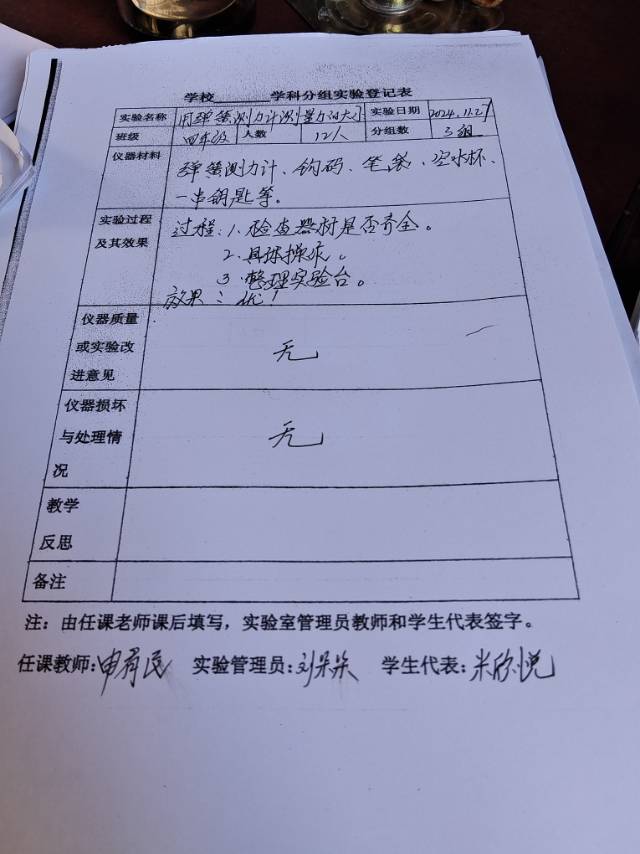 学校______学科分组实验登记表
实验名称 用弹簧测力计测量力的大小 实验日期 2024.11.27
班级 四年级 人数 12人 分组数 3组
仪器材料 弹簧测力计、钩码、笔袋、空水杯、
一串钥匙等。
实验过程 过程:1.检查器材是否齐全。
及其效果 2.具体操作。
3.整理实验台。
效果:优!
仪器质量
或实验改 无
进意见
仪器损坏
与处理情 无
况
教学
反思
备注
注:由任课老师课后填写,实验室管理员教师和学生代表签字。
任课教师:申有民 实验管理员:刘朵朵 学生代表:米欣悦